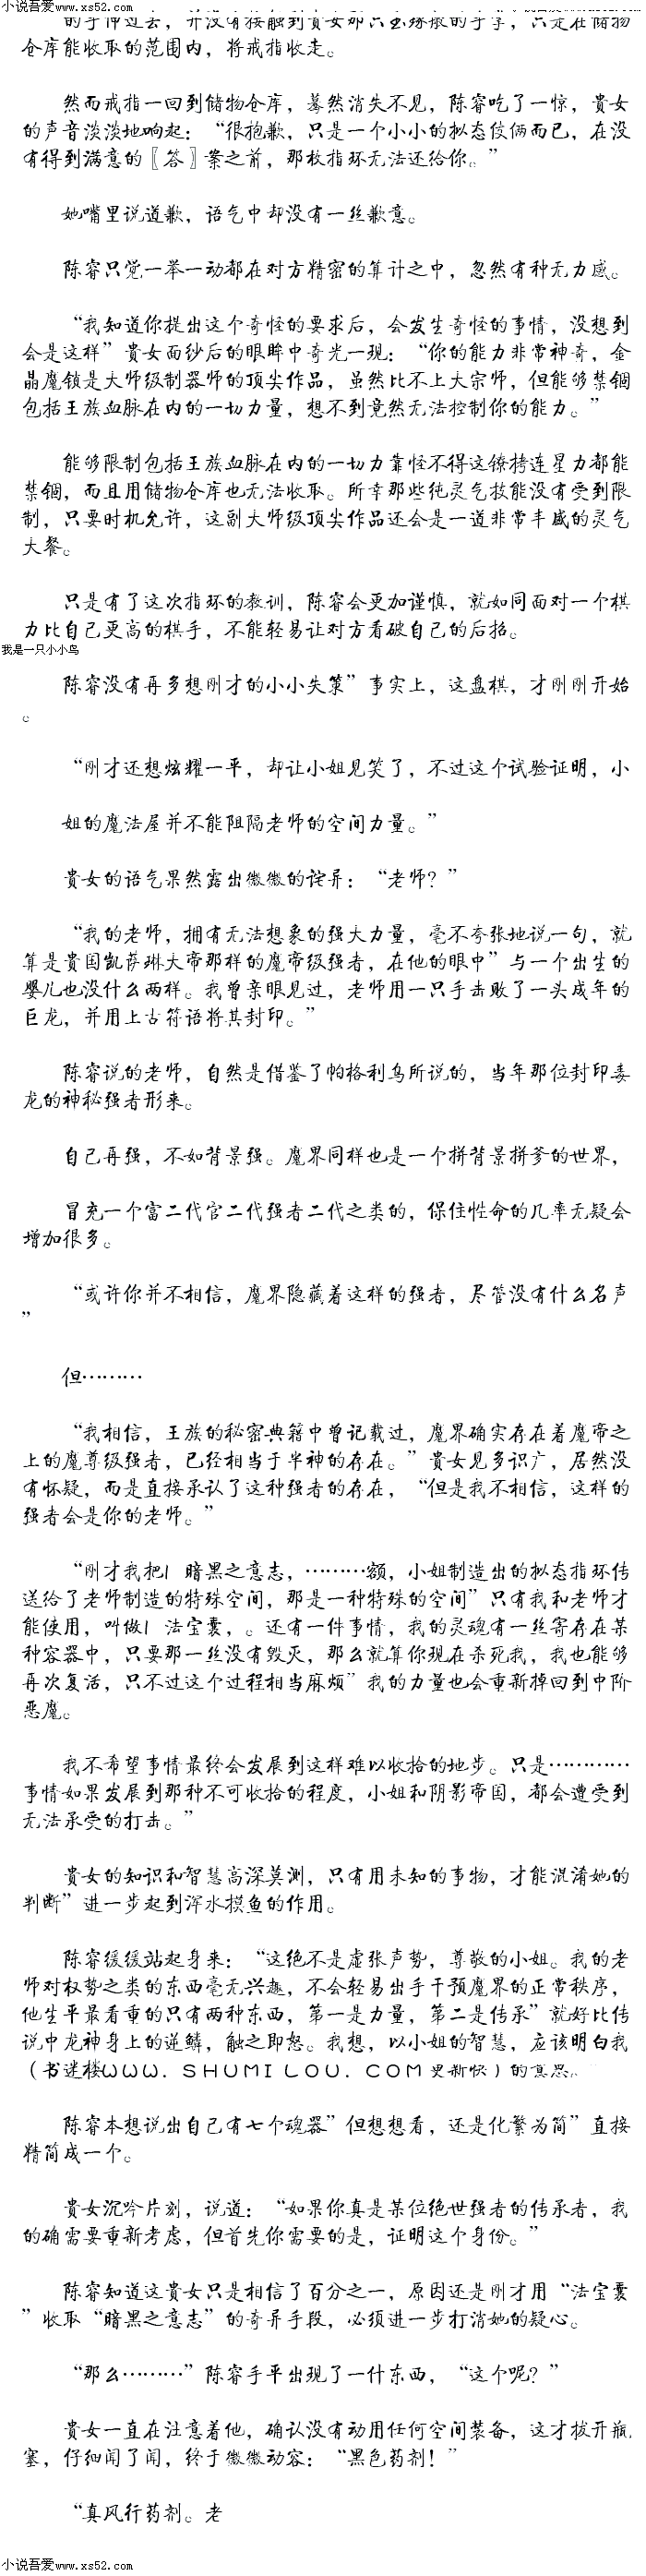 小说吾爱www.xs52.com
的手伸过去，并没有接触到贵女那只玉琢般的手掌，只是在储物
仓库能收取的范围内，将戒指收走。
然而戒指一回到储物仓库，蓦然消失不见，陈睿吃了一惊，贵女
的声音淡淡地响起：“很抱歉，只是一个小小的拟态伎俩而已，在没
有得到满意的〖答〗案之前，那枚指环无法还给你。”
她嘴里说道歉，语气中却没有一丝歉意。
陈睿只觉一举一动都在对方精密的算计之中，忽然有种无力感。
“我知道你提出这个奇怪的要求后，会发生奇怪的事情，没想到
会是这样”贵女面纱后的眼眸中奇光一现：“你的能力非常神奇，金
晶魔锁是大师级制器师的顶尖作品，虽然比不上大宗师，但能够禁锢
包括王族血脉在内的一切力量，想不到竟然无法控制你的能力。”
能够限制包括王族血脉在内的一切力靠怪不得这镣拷连星力都能
禁锢，而且用储物仓库也无法收取。所幸那些纯灵气技能没有受到限
制，只要时机允许，这副大师级顶尖作品还会是一道非常丰盛的灵气
大餐。
只是有了这次指环的教训，陈睿会更加谨慎，就如同面对一个棋
力比自己更高的棋手，不能轻易让对方看破自己的后招。
我是一只小小鸟
陈睿没有再多想刚才的小小失策”事实上，这盘棋，才刚刚开始
。
“刚才还想炫耀一平，却让小姐见笑了，不过这个试验证明，小
姐的魔法屋并不能阻隔老师的空间力量。”
贵女的语气果然露出微微的诧异：“老师？”
“我的老师，拥有无法想象的强大力量，毫不夸张地说一句，就
算是贵国凯萨琳大帝那样的魔帝级强者，在他的眼中”与一个出生的
婴儿也没什么两样。我曾亲眼见过，老师用一只手击败了一头成年的
巨龙，并用上古符语将其封印。”
陈睿说的老师，自然是借鉴了帕格利乌所说的，当年那位封印毒
龙的神秘强者形来。
自己再强，不如背景强。魔界同样也是一个拼背景拼爹的世界，
冒充一个富二代官二代强者二代之类的，保住性命的几率无疑会
增加很多。
“或许你并不相信，魔界隐藏着这样的强者，尽管没有什么名声
”
但………
“我相信，王族的秘密典籍中曾记载过，魔界确实存在着魔帝之
上的魔尊级强者，已经相当于半神的存在。”贵女见多识广，居然没
有怀疑，而是直接承认了这种强者的存在，“但是我不相信，这样的
强者会是你的老师。”
“刚才我把I 暗黑之意志，………额，小姐制造出的拟态指环传
送给了老师制造的特殊空间，那是一种特殊的空间”只有我和老师才
能使用，叫做I 法宝囊，。还有一件事情，我的灵魂有一丝寄存在某
种容器中，只要那一丝没有毁灭，那么就算你现在杀死我，我也能够
再次复活，只不过这个过程相当麻烦”我的力量也会重新掉回到中阶
恶魔。
我不希望事情最终会发展到这样难以收拾的地步。只是…………
事情如果发展到那种不可收拾的程度，小姐和阴影帝国，都会遭受到
无法承受的打击。”
贵女的知识和智慧高深莫测，只有用未知的事物，才能混淆她的
判断”进一步起到浑水摸鱼的作用。
陈睿缓缓站起身来：“这绝不是虚张声势，尊敬的小姐。我的老
师对权势之类的东西毫无兴趣，不会轻易出手干预魔界的正常秩序，
他生平最看重的只有两种东西，第一是力量，第二是传承”就好比传
说中龙神身上的逆鳞，触之即怒。我想，以小姐的智慧，应该明白我
（书迷楼WWW．ＳＨＵＭＩＬＯＵ．ＣＯＭ更新快）的意思。”
陈睿本想说出自己有七个魂器”但想想看，还是化繁为简”直接
精简成一个。
贵女沉吟片刻，说道：“如果你真是某位绝世强者的传承者，我
的确需要重新考虑，但首先你需要的是，证明这个身份。”
陈睿知道这贵女只是相信了百分之一，原因还是刚才用“法宝囊
”收取“暗黑之意志”的奇异手段，必须进一步打消她的疑心。
“那么………”陈睿手平出现了一什东西，“这个呢？”
贵女一直在注意着他，确认没有动用任何空间装备，这才拔开瓶
塞，仔细闻了闻，终于微微动容：“黑色药剂！”
“真风行药剂。老
小说吾爱www.xs52.com